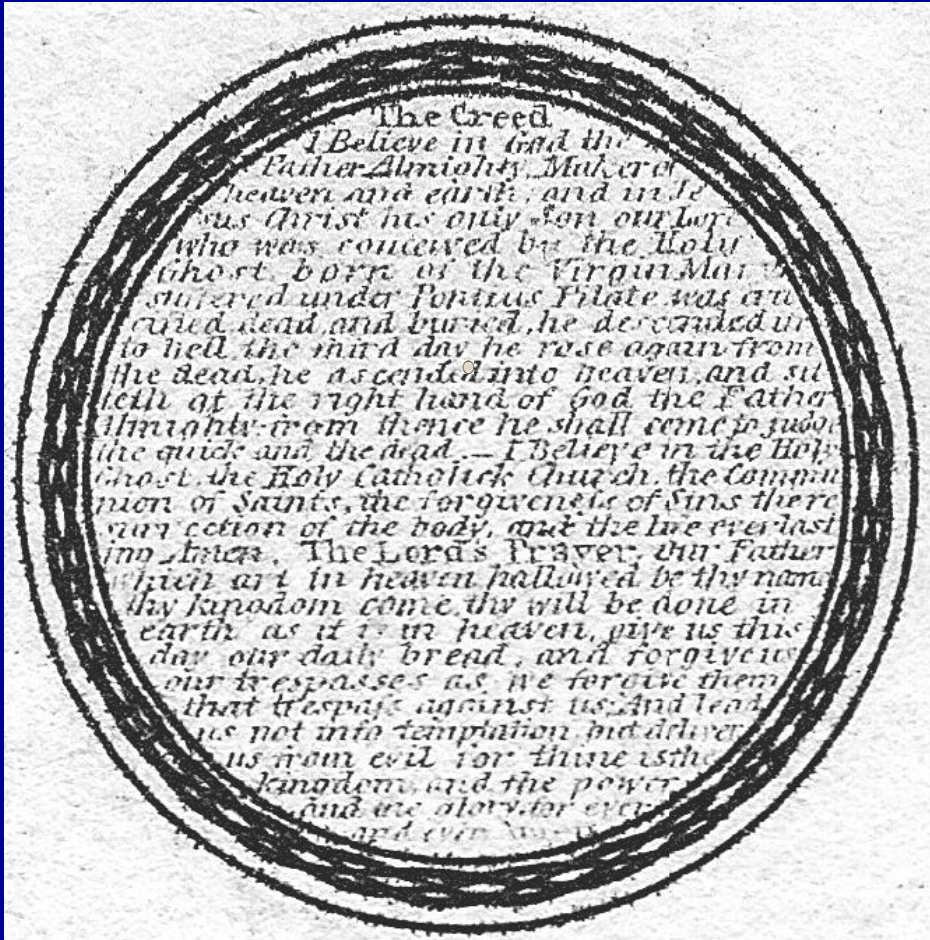 The Creed
I Believe in God the
Father Almighty, Maker of
heaven and earth, and in Je
sus Christ his only Son our Lord
who was conceived by the Holy
Ghost, born of the Virgin Mary
suffered under Pontius Pilate was cru
cified dead and buried, he descended in
to hell, the third day he rose again from
the dead, he ascended into heaven, and sit
teth at the right hand of God the Father
Almighty from thence he shall come to judge
the quick and the dead. — I Believe in the Holy
Ghost, the Holy Catholick Church, the Commu
nion of Saints, the forgiveneſs of Sins the re
surrection of the body, and the life everlast
ing Amen. The Lord's Prayer, Our Father
which art in heaven hallowed be thy name
thy kingdom come, thy will be done in
earth as it is in heaven, give us this
day our daily bread, and forgive us
our trespasses as we forgive them
that treſpaſs against us; And lead
us not into temptation, but deliver
us from evil for thine is the
kingdom, and the power
and the glory, for ever
and ever